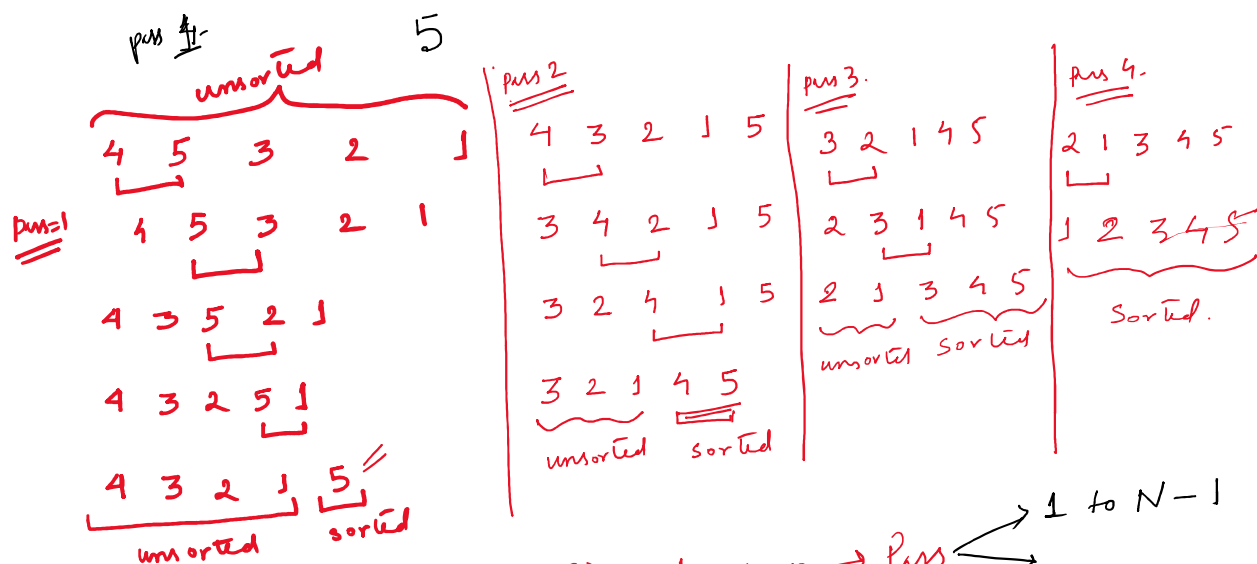 pass 1 5
unsorted
4 5 3 2 1
pass=1 4 5 3 2 1
4 3 5 2 1
4 3 2 5 1
4 3 2 1 5
unsorted sorted
pass 2
4 3 2 1 5
3 4 2 1 5
3 2 4 1 5
3 2 1 4 5
unsorted sorted
pass 3.
3 2 1 4 5
2 3 1 4 5
2 1 3 4 5
unsorted sorted
pass 4.
2 1 3 4 5
1 2 3 4 5
Sorted.
Pass 1 to N-1